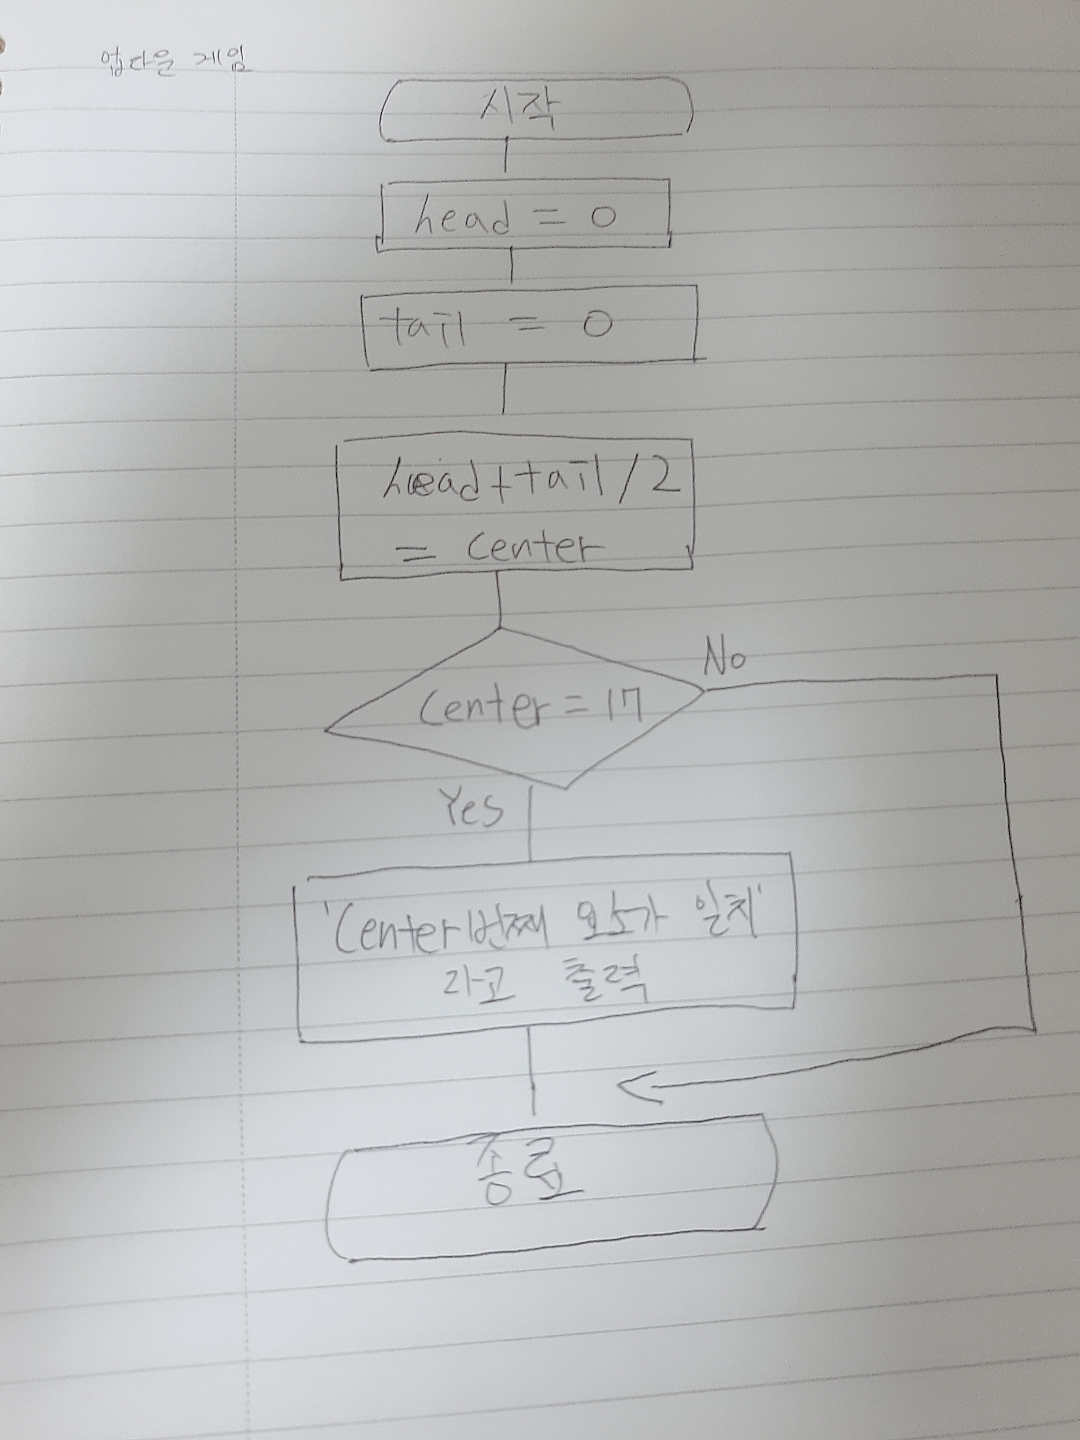 업다운 게임
시작
head = 0
tail = 0
head+tail/2
= Center
Center = 17
No
Yes
'Center번째 요소가 일치'
라고 출력
종료